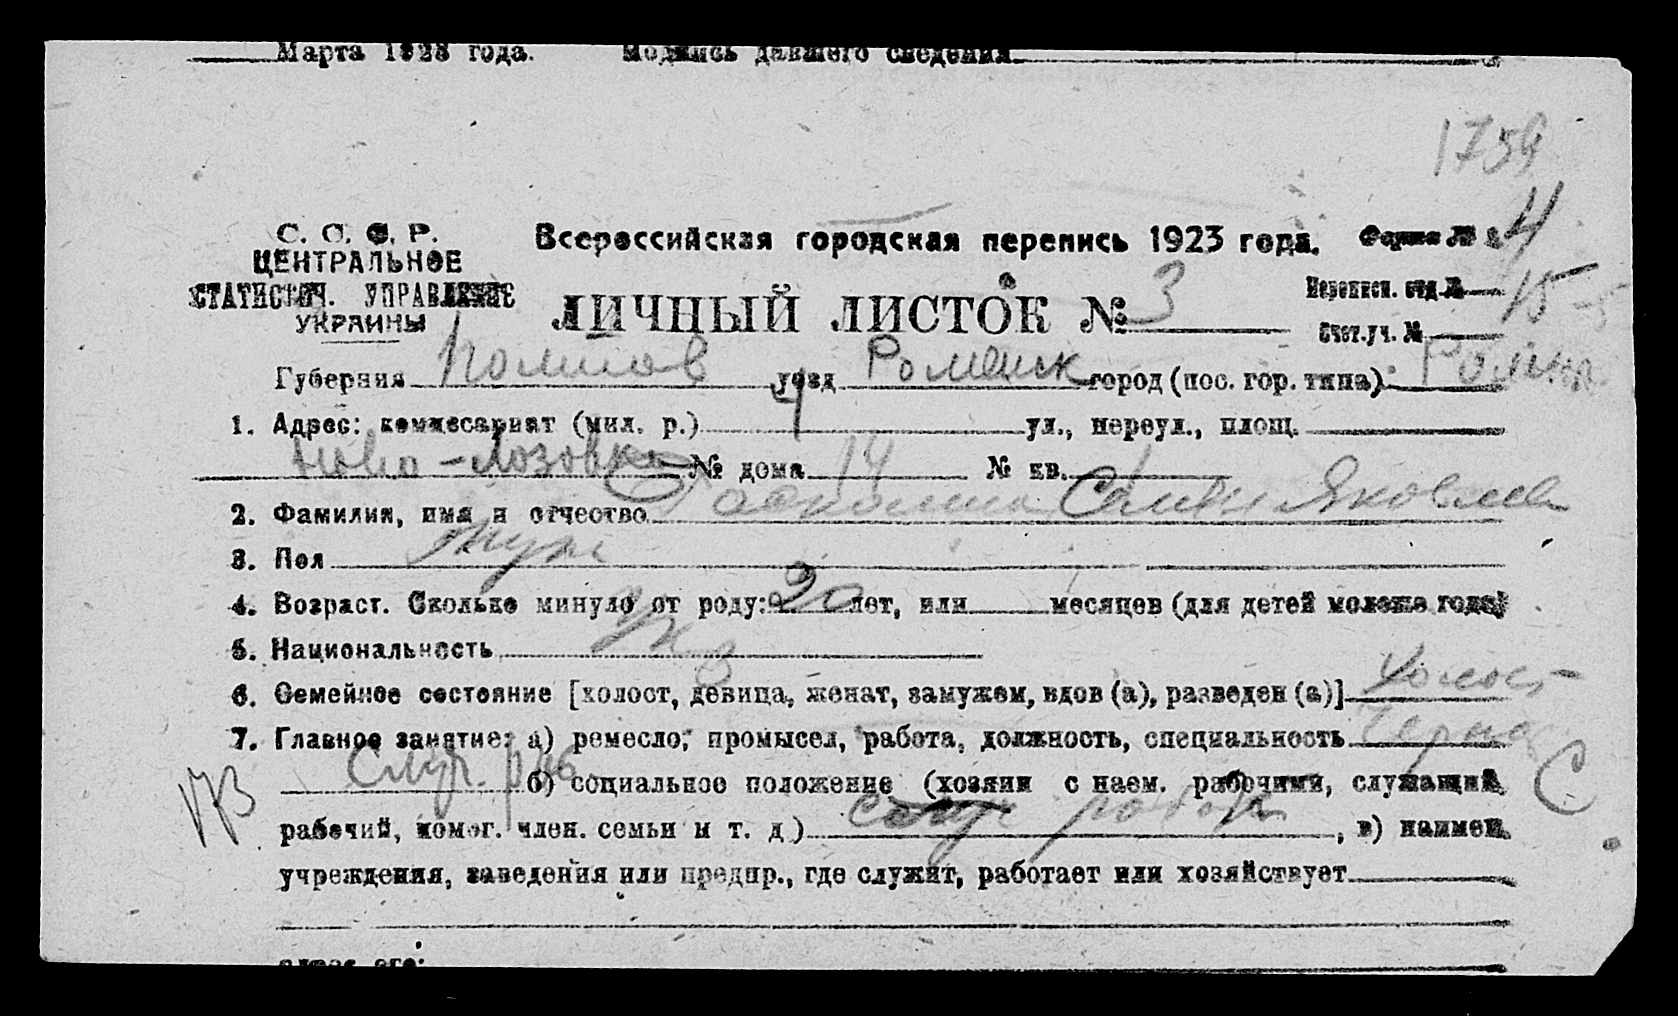 Марта 1923 года. Подпись давшего сведения
1759
С. С. С. Р.
ЦЕНТРАЛЬНОЕ
СТАТИСТИЧ. УПРАВЛЕНИЕ
УКРАИНЫ
Всероссийская городская перепись 1923 года. Форма № 4
ЛИЧНЫЙ ЛИСТОК № 3
Переписн. отд. № 15
Счет. уч. №
Губерния Полтав уезд Роменск город (пос. гор. типа) Ромны
1. Адрес: комиссариат (мил. р.) 4 ул., переул., площ.
Ново-Лозовка № дома 14 № кв. 1
2. Фамилия, имя и отчество Семен Яковлев
3. Пол муж
4. Возраст. Сколько минуло от роду: 20 лет, или месяцев (для детей моложе года)
5. Национальность Ук
6. Семейное состояние [холост, девица, женат, замужем, вдов (а), разведен (а)] холост
7. Главное занятие: а) ремесло, промысел, работа, должность, специальность
173 б) социальное положение (хозяин с наем. рабочими, служащий, С
рабочий, помог. член. семьи и т. д.) , в) наимен.
учреждения, заведения или предпр., где служит, работает или хозяйствует
адрес его: